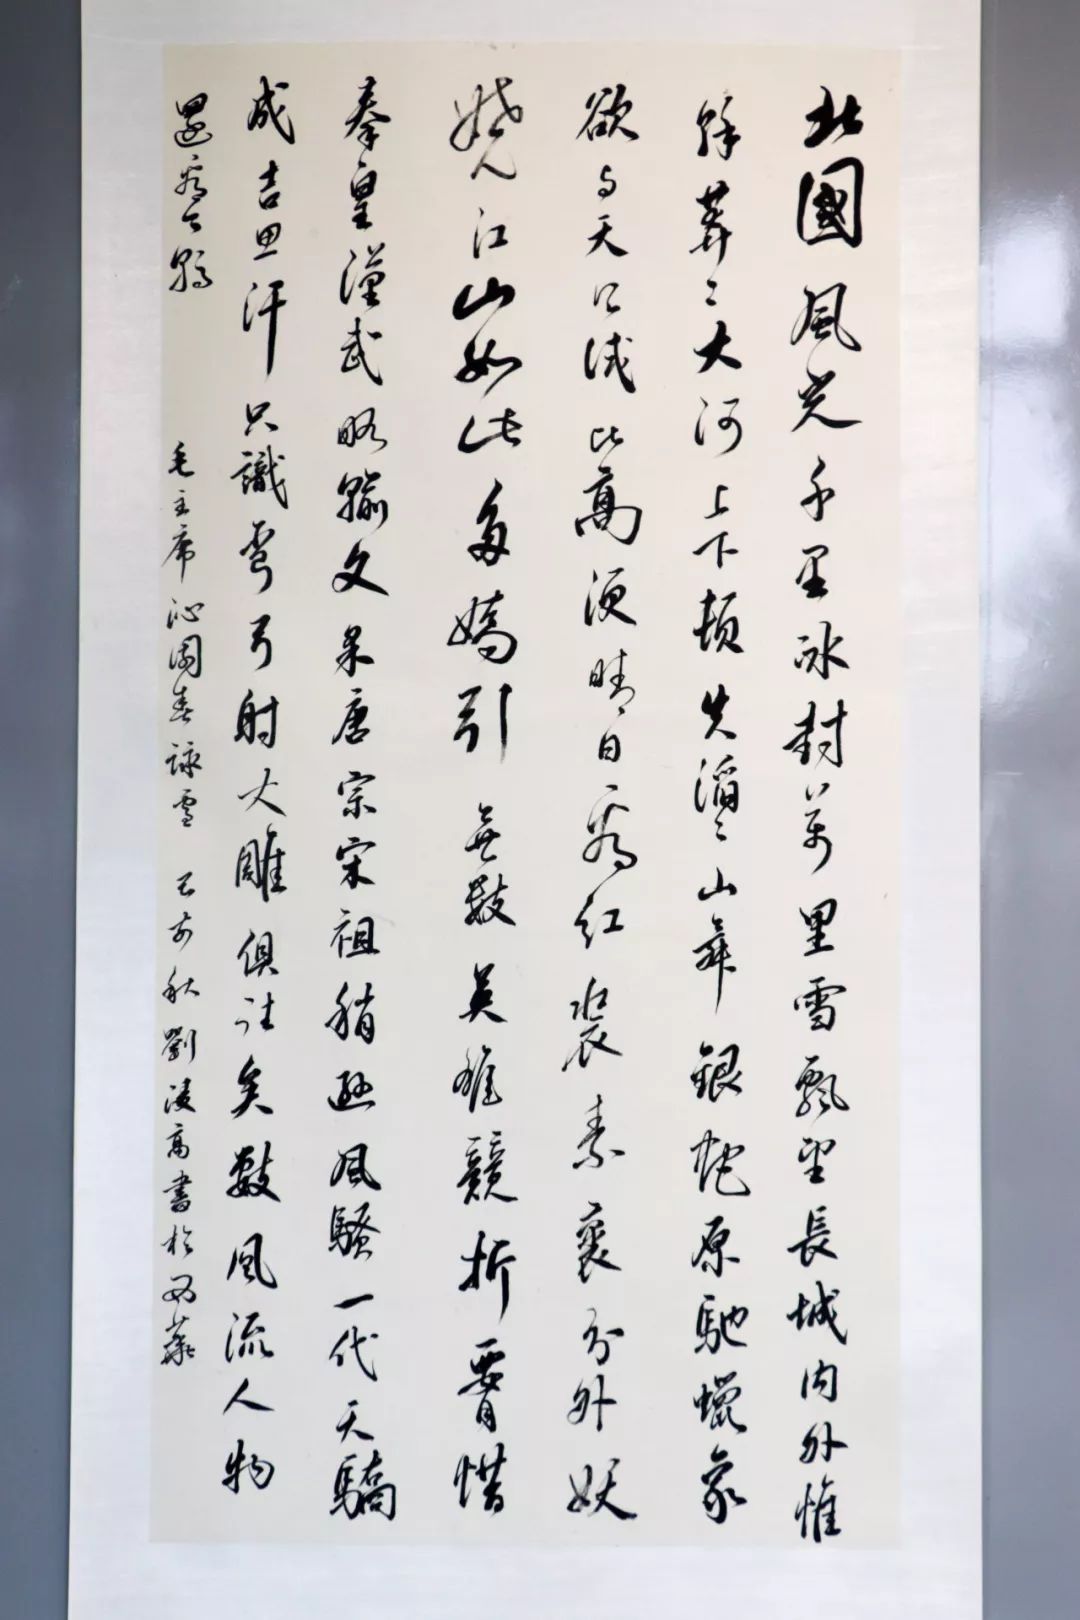 北國風光千里冰封萬里雪飄望長城內外惟
餘莽〻大河上下頓失滔〻山舞銀蛇原馳蠟象
欲与天公試比高須晴日看紅裝素裹分外妖
嬈江山如此多嬌引無數英雄競折腰惜
秦皇漢武略輸文采唐宗宋祖稍遜風騷一代天驕
成吉思汗只識彎弓射大雕俱往矣數風流人物
還看今朝 毛主席沁園春詠雪 己亥秋劉凌高書於